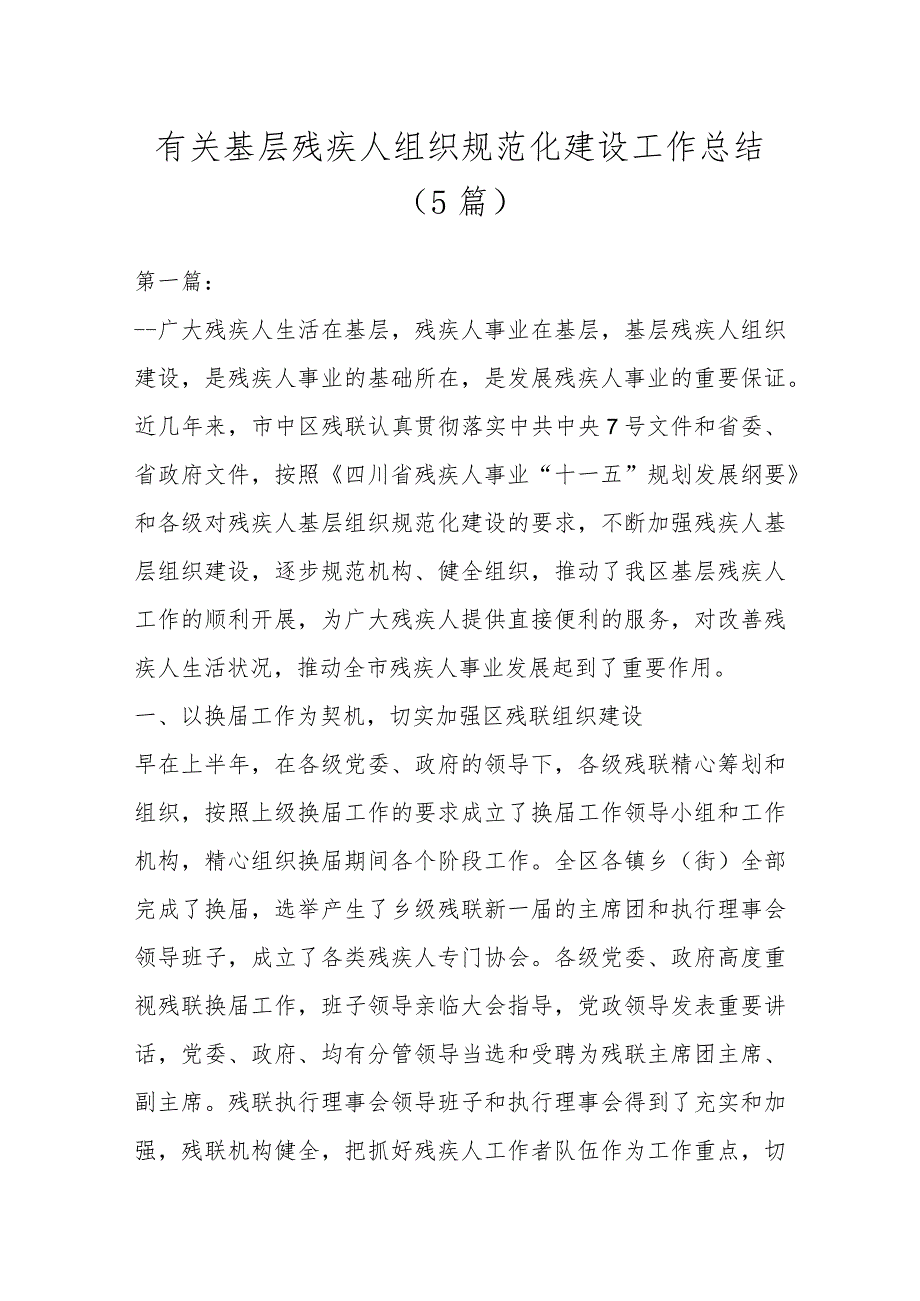 有关基层残疾人组织规范化建设工作总结
（5 篇）
第一篇：
--广大残疾人生活在基层，残疾人事业在基层，基层残疾人组织
建设，是残疾人事业的基础所在，是发展残疾人事业的重要保证。
近几年来，市中区残联认真贯彻落实中共中央 7 号文件和省委、
省政府文件，按照《四川省残疾人事业“十一五”规划发展纲要》
和各级对残疾人基层组织规范化建设的要求，不断加强残疾人基
层组织建设，逐步规范机构、健全组织，推动了我区基层残疾人
工作的顺利开展，为广大残疾人提供直接便利的服务，对改善残
疾人生活状况，推动全市残疾人事业发展起到了重要作用。
一、以换届工作为契机，切实加强区残联组织建设
早在上半年，在各级党委、政府的领导下，各级残联精心筹划和
组织，按照上级换届工作的要求成立了换届工作领导小组和工作
机构，精心组织换届期间各个阶段工作。全区各镇乡（街）全部
完成了换届，选举产生了乡级残联新一届的主席团和执行理事会
领导班子，成立了各类残疾人专门协会。各级党委、政府高度重
视残联换届工作，班子领导亲临大会指导，党政领导发表重要讲
话，党委、政府、均有分管领导当选和受聘为残联主席团主席、
副主席。残联执行理事会领导班子和执行理事会得到了充实和加
强，残联机构健全，把抓好残疾人工作者队伍作为工作重点，切